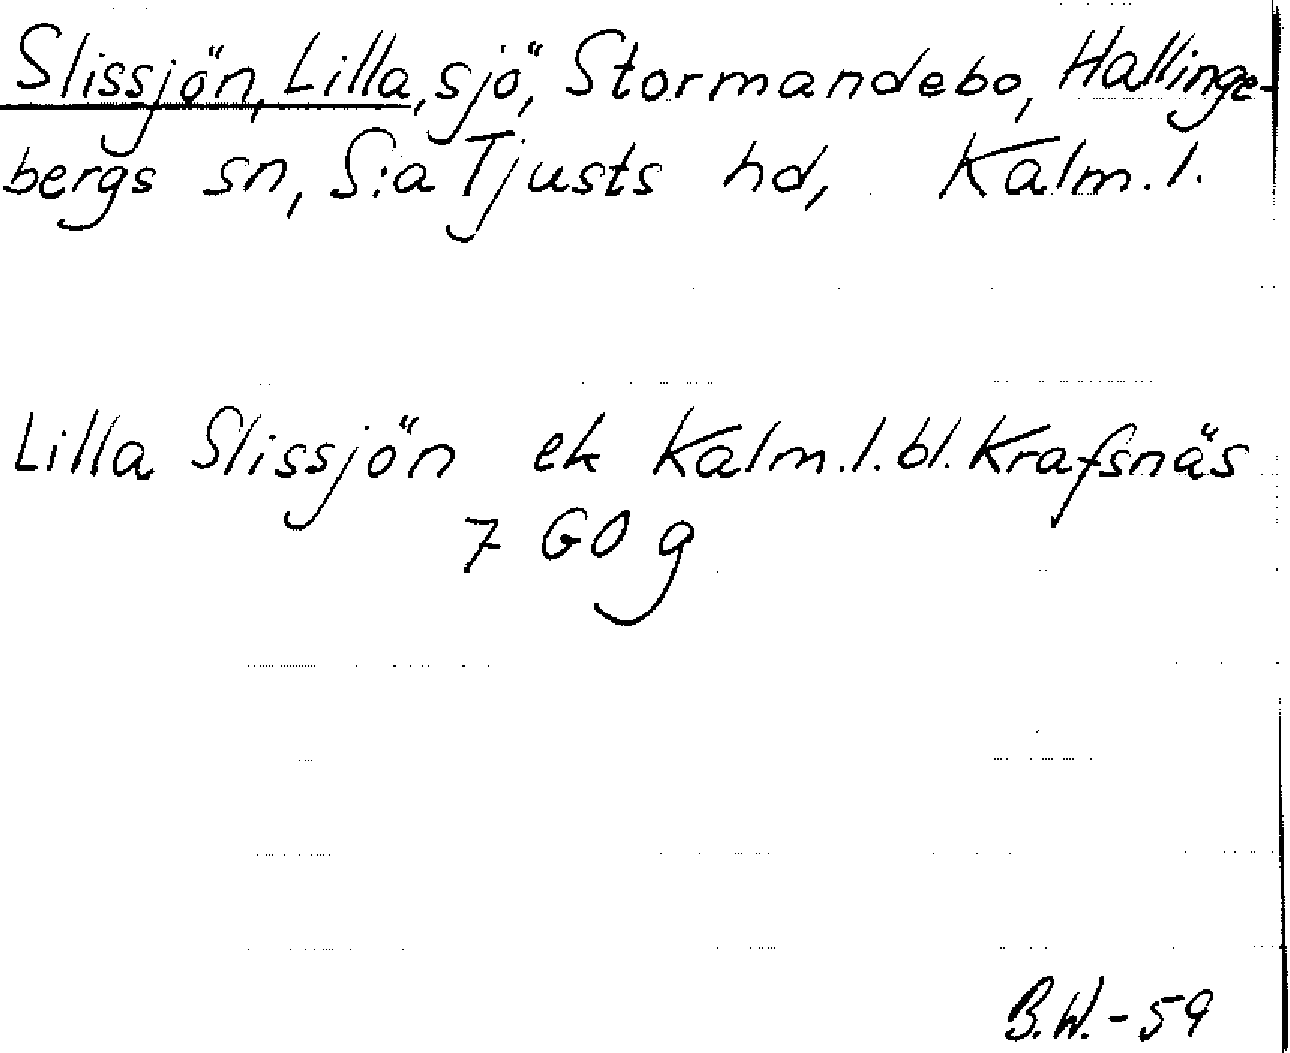 Slissjön, Lilla, sjö, Stormandebo, Hallinge-
bergs sn, S:a Tjusts hd, Kalm. l.
Lilla Slissjön ek Kalm. l. bl. Krafsnäs
7 GO g
B.W.-59